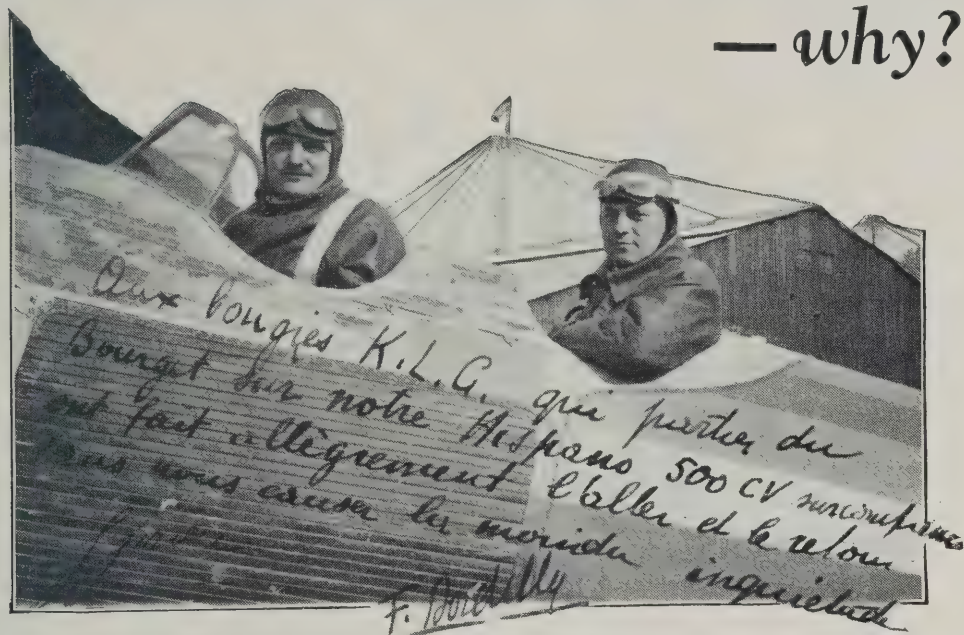 — why?
Aux bougies K.L.G. qui parties du
Bourget sur notre Hispano 500 CV surcomprimé
ont fait allègrement l'aller et le retour
sans nous causer la moindre inquiétude